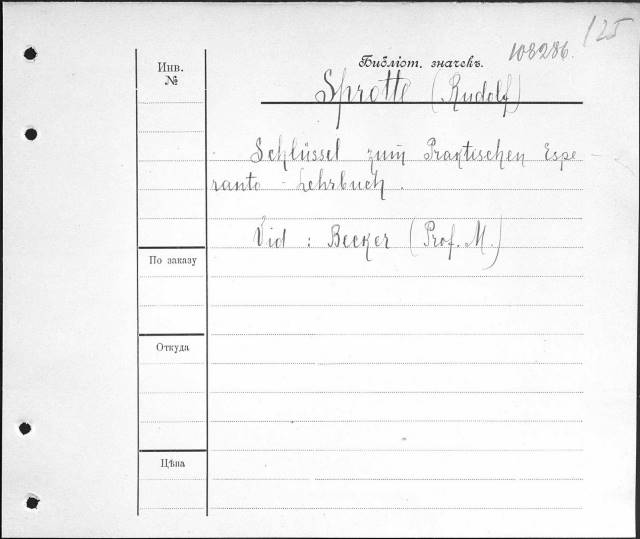 125
108286.
Инв. №
Библіот. значекъ.
Sprotte (Rudolf)
Schlüssel zum Praktischen Espe-
ranto-Lehrbuch.
Vid : Becker (Prof. M.)
По заказу
Откуда
Цѣна